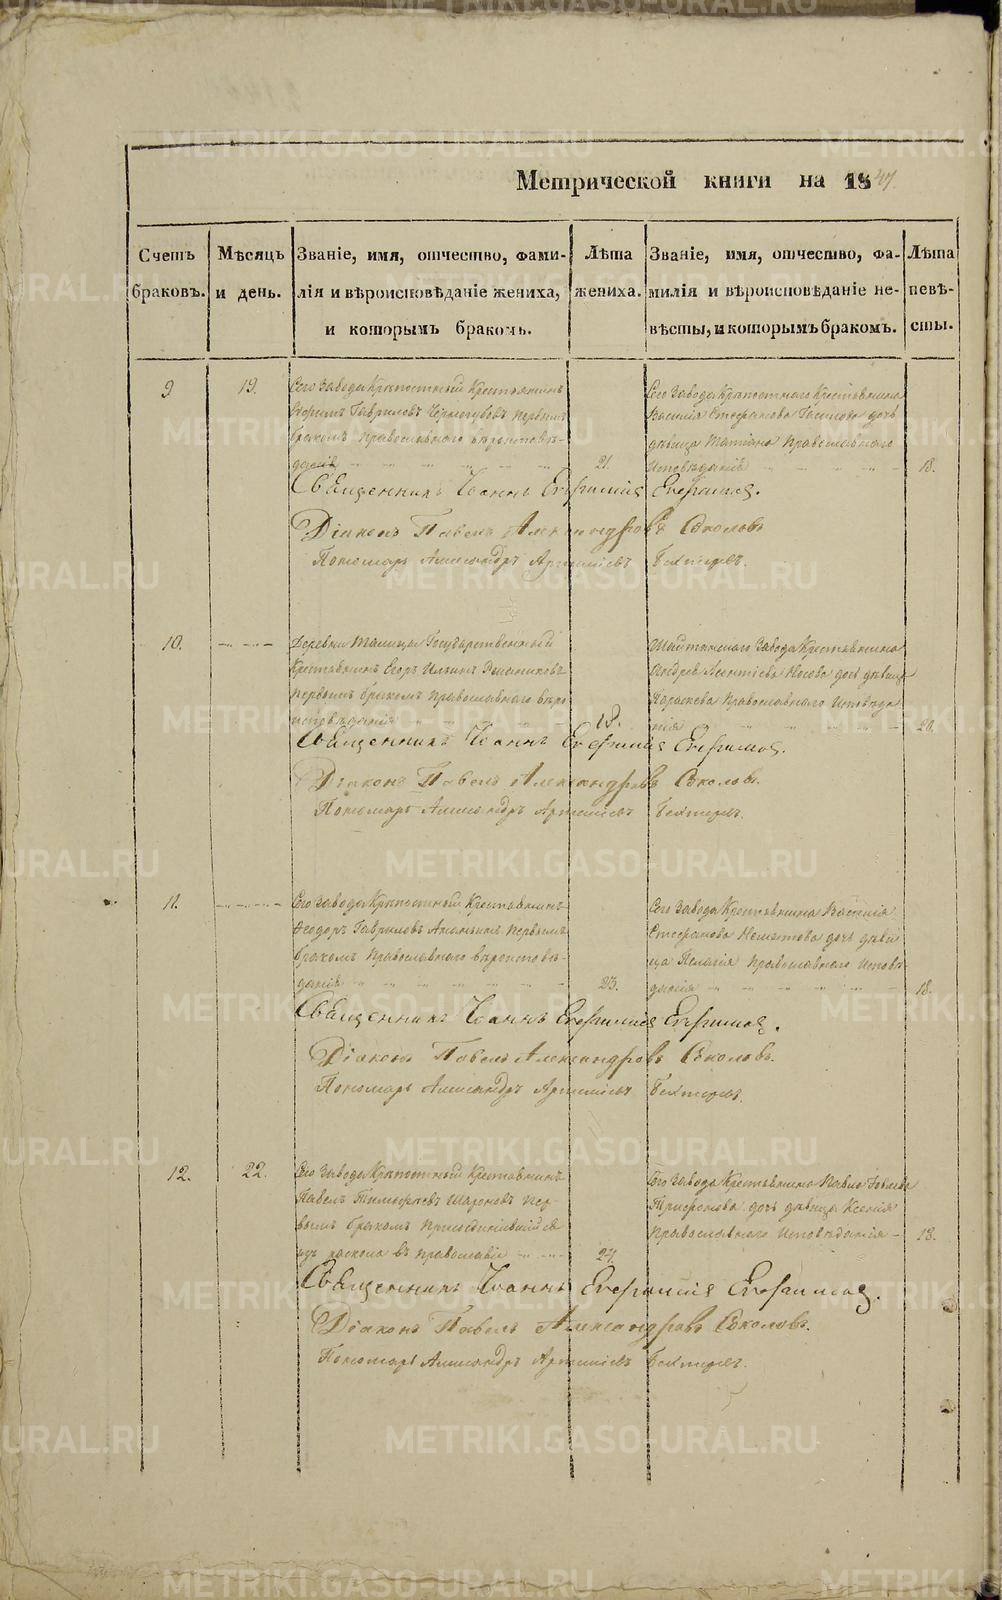 METRIKI.GASO-URAL.RU
Метрической книги на 1847
Счетъ браковъ.
Мѣсяцъ и день.
Званіе, имя, отчество, фами-
лія и вѣроисповѣданіе жениха,
и которымъ бракомъ.
Лѣта жениха.
Званіе, имя, отчество, фа-
милія и вѣроисповѣданіе не-
вѣсты, и которымъ бракомъ.
Лѣта невѣ-
сты.
9
19.
Сего Завода Крѣпостный Крестьянинъ
Гавриловъ первымъ
бракомъ православнаго вѣроисповѣ-
данія
21.
Сего Завода Крѣпостнаго Крестьянина
Василія Стефанова дочь
дѣвица Татіана Православнаго
Исповѣданія
18.
Священникъ Іоаннъ Евфиміевъ Евфимовъ.
Діаконъ Павелъ Александровъ Соколовъ
Пономарь Александръ Артеміевъ Бехтеревъ.
10.
Деревни Талицы Государственный
Крестьянинъ Егоръ Ильинъ
первымъ бракомъ Православнаго вѣро
исповѣданія
18.
Шайтанскаго Завода Крестьянина
Андрея Леонтіева Носова дочь дѣвица
Параскева Православнаго Исповѣда
нія
20.
Священникъ Іоаннъ Евфиміевъ Евфимовъ.
Діаконъ Павелъ Александровъ Соколовъ.
Пономарь Александръ Артеміевъ Бехтеревъ.
11.
Сего Завода Крѣпостный Крестьянинъ
Феодоръ Гавриловъ первымъ
бракомъ Православнаго вѣроисповѣ-
данія
23.
Сего Завода Крестьянина Василія
Стефанова дочь дѣви
ца Пелагія Православнаго Исповѣ
данія
18.
Священникъ Іоаннъ Евфиміевъ Евфимовъ.
Діаконъ Павелъ Александровъ Соколовъ.
Пономарь Александръ Артеміевъ Бехтеревъ.
12.
22.
Сего Завода Крѣпостный Крестьянинъ
Павелъ Тимофеевъ пер-
вымъ бракомъ Присоединившійся
изъ раскола въ православіе
27.
Сего Завода Крестьянина Павла
Трифонова дочь дѣвица Ксенія
Православнаго Исповѣданія
18.
Священникъ Іоаннъ Евфиміевъ Евфимовъ.
Діаконъ Павелъ Александровъ Соколовъ.
Пономарь Александръ Артеміевъ Бехтеревъ.